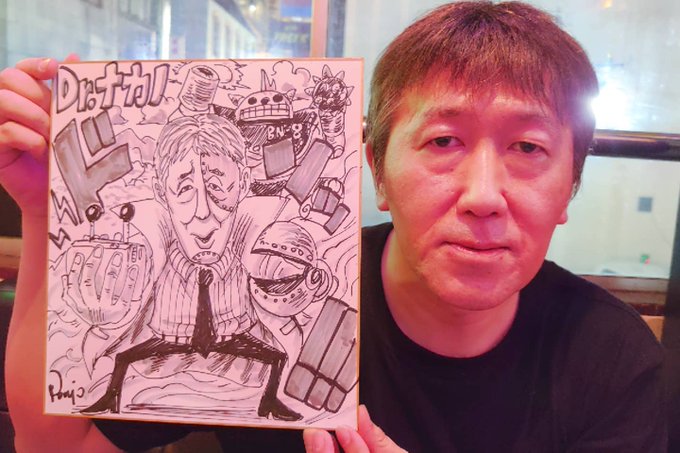 Dr.ナカノ
ド
BN-8